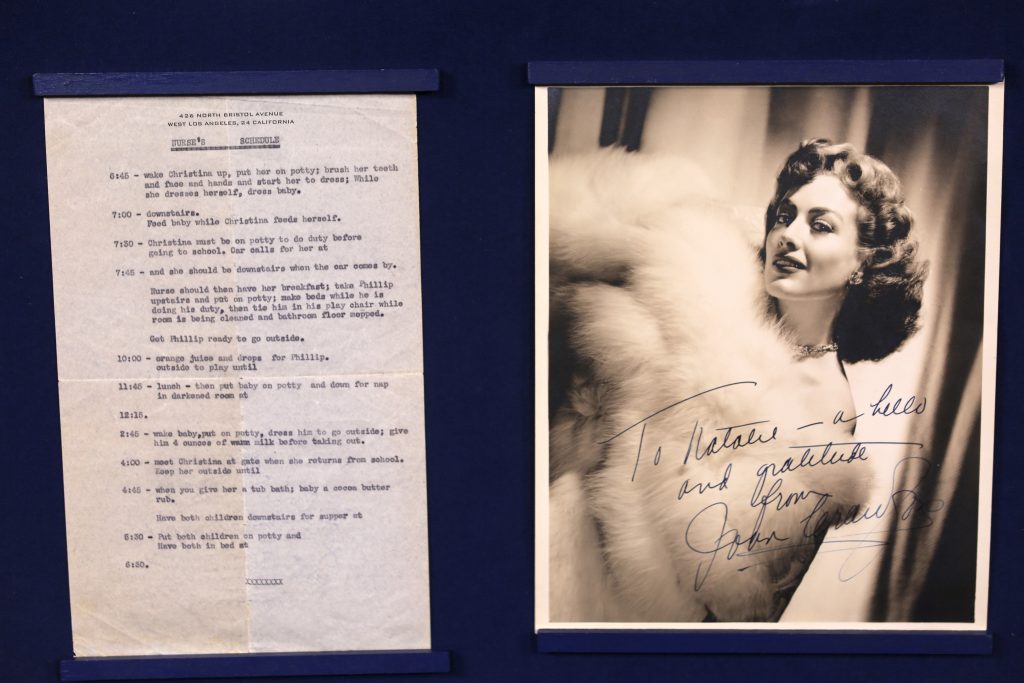 426 NORTH BRISTOL AVENUE
WEST LOS ANGELES, 24 CALIFORNIA
NURSE'S SCHEDULE
6:45 - wake Christina up, put her on potty; brush her teeth
and face and hands and start her to dress; While
she dresses herself, dress baby.
7:00 - downstairs.
Feed baby while Christina feeds herself.
7:30 - Christina must be on potty to do duty before
going to school. Car calls for her at
7:45 - and she should be downstairs when the car comes by.
Nurse should then have her breakfast; take Phillip
upstairs and put on potty; make beds while he is
doing his duty, then tie him in his play chair while
room is being cleaned and bathroom floor mopped.
Get Phillip ready to go outside.
10:00 - orange juice and drops for Phillip.
outside to play until
11:45 - lunch - then put baby on potty and down for nap
in darkened room at
12:15.
2:45 - wake baby,put on potty, dress him to go outside; give
him 4 ounces of warm milk before taking out.
4:00 - meet Christina at gate when she returns from school.
Keep her outside until
4:45 - when you give her a tub bath; baby a cocoa butter
rub.
Have both children downstairs for supper at
6:30 - Put both children on potty and
Have both in bed at
6:50.
XXXXXXXX
To Natalie - a hello
and gratitude
from
Joan Crawford